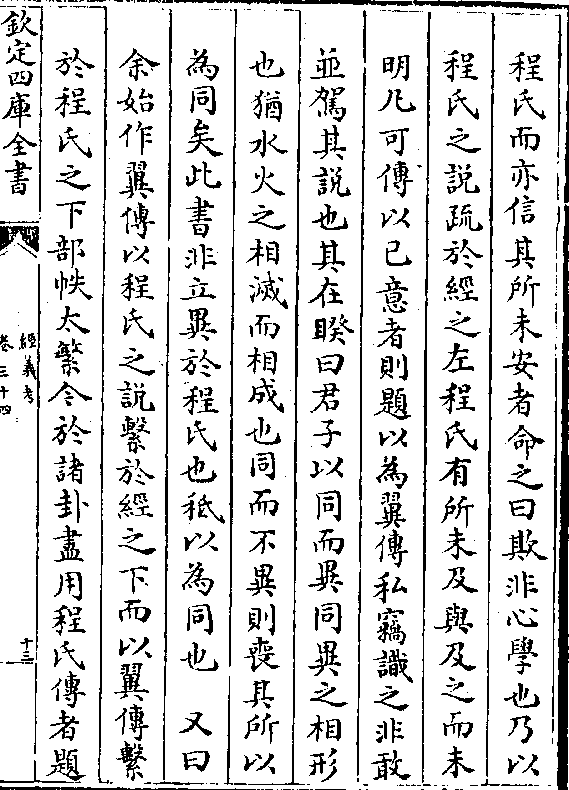 程氏而亦信其所未安者命之曰欺非心學也乃以
程氏之說疏於經之左程氏有所未及與及之而未
明凡可傳以已意者則題以為翼傳私竊識之非敢
並駕其說也其在睽曰君子以同而異同異之相形
也猶水火之相滅而相成也同而不異則喪其所以
為同矣此書非立異於程氏也秪以為同也　又曰
余始作翼傳以程氏之說繫於經之下而以翼傳繫
於程氏之下部帙太繁令於諸卦盡用程氏傳者題
欽定四庫全書
經義考
卷三十四
十三